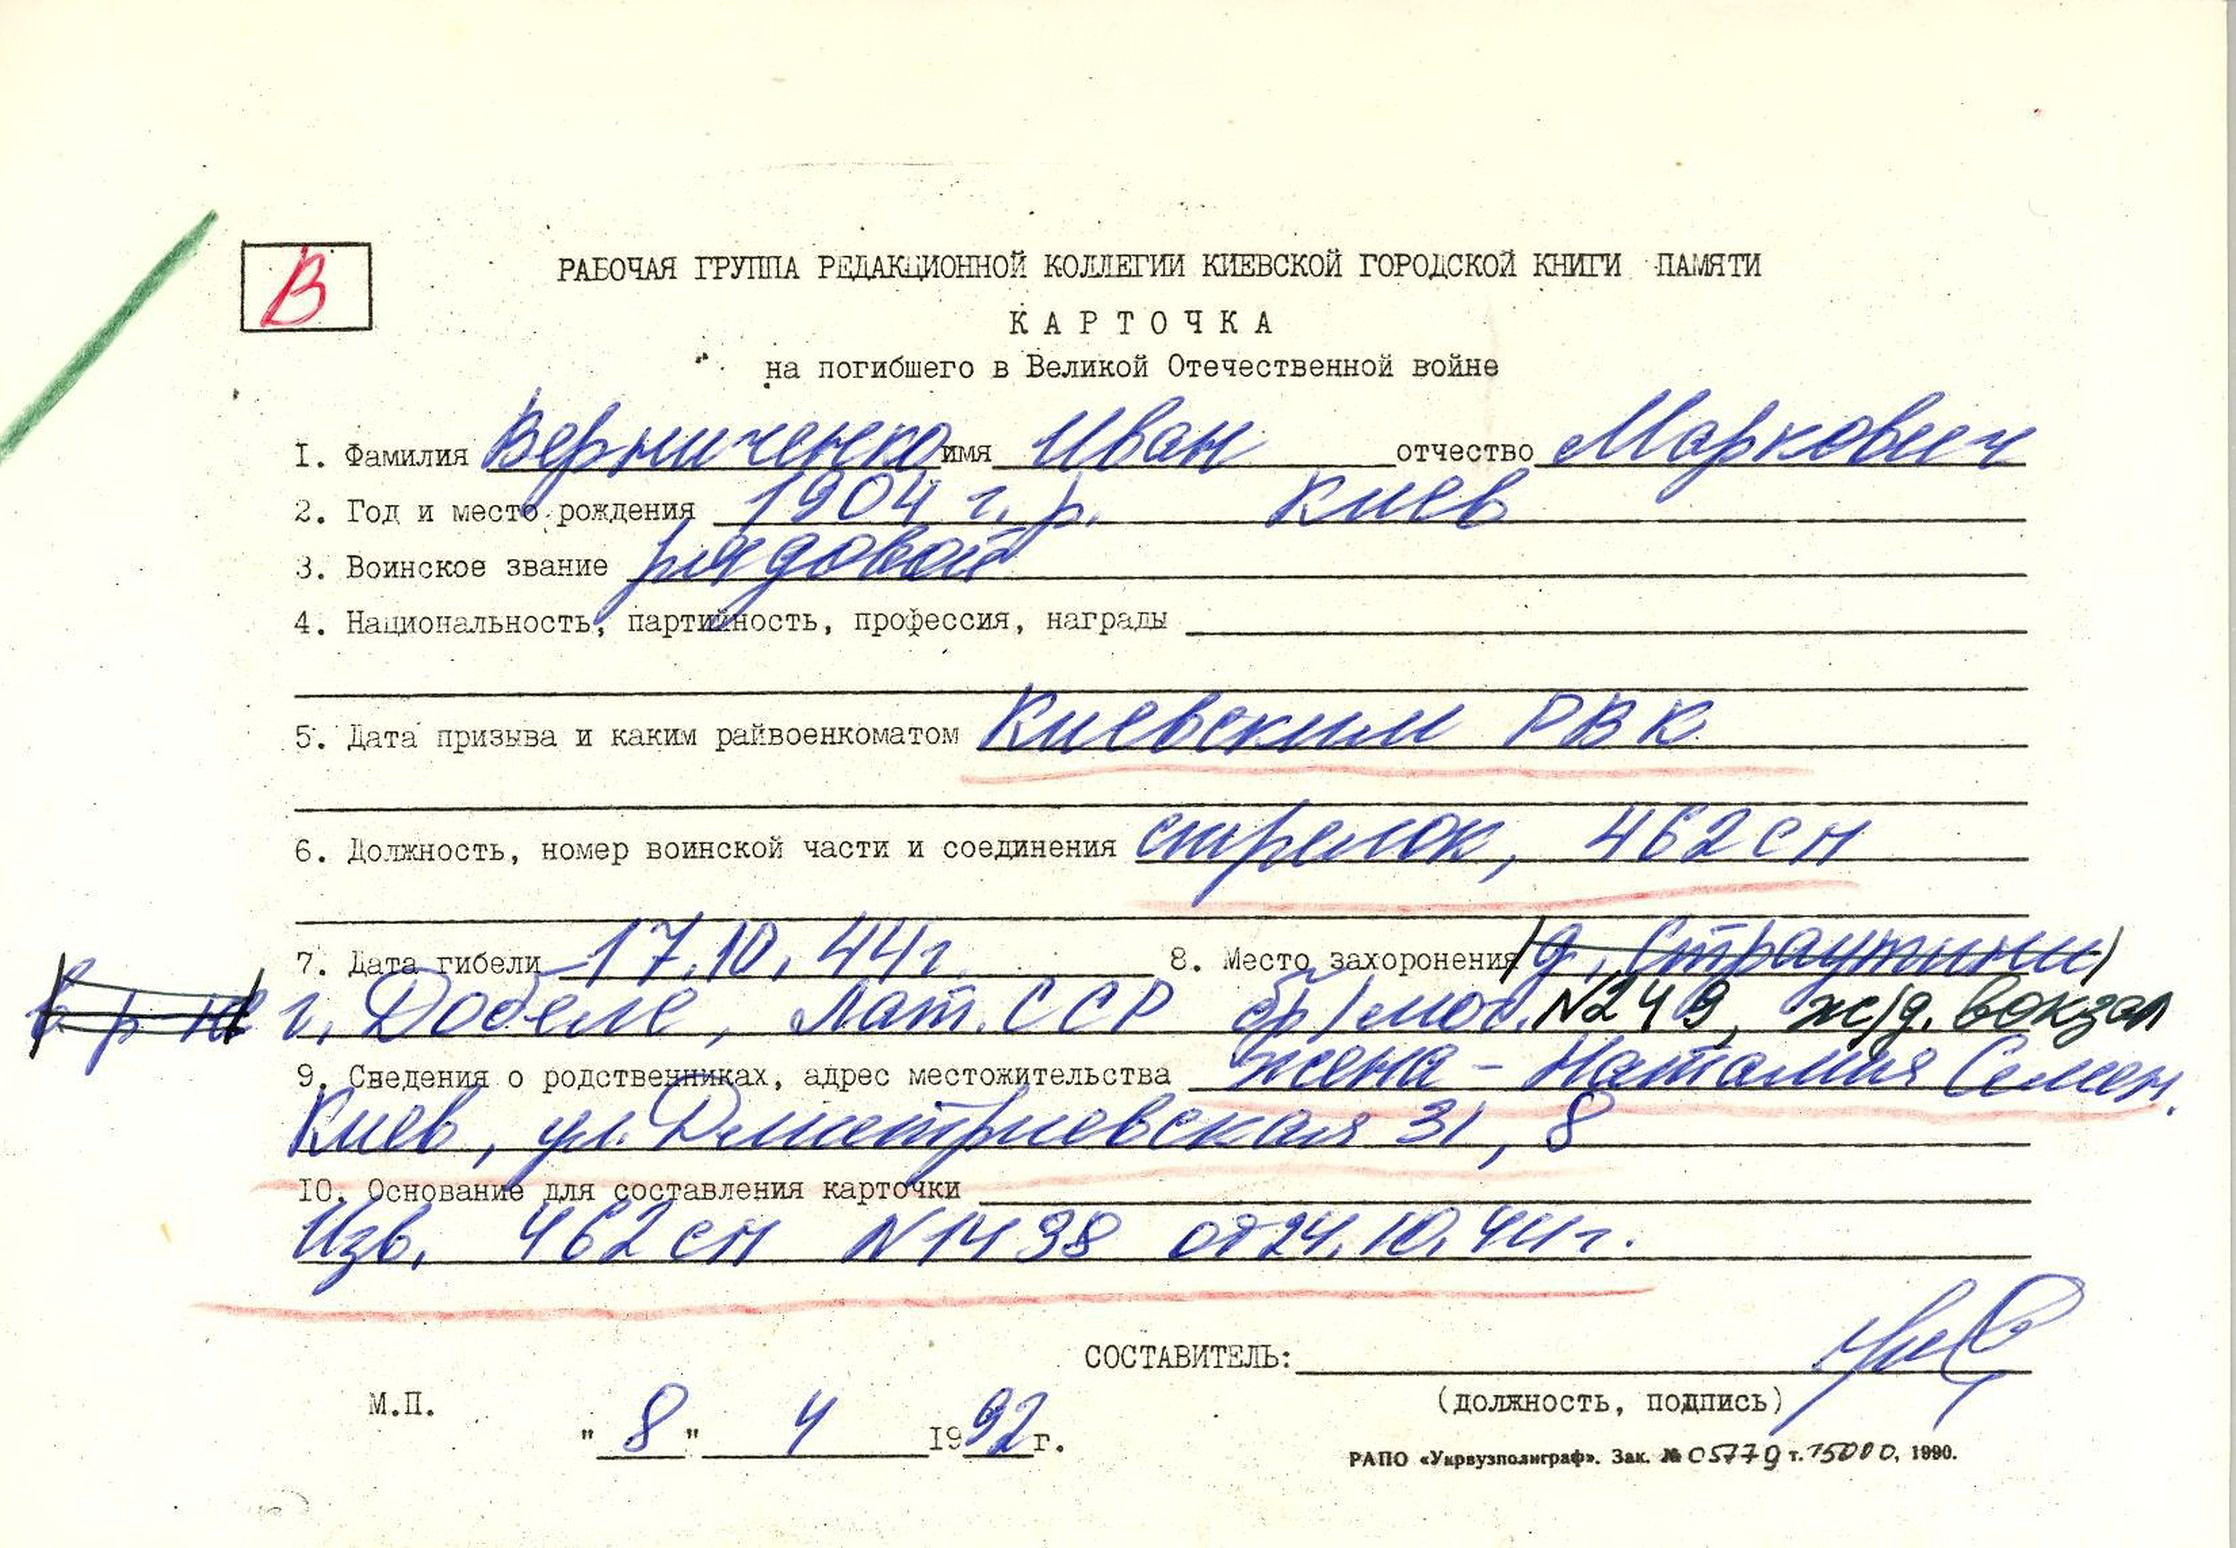 В
РАБОЧАЯ ГРУППА РЕДАКЦИОННОЙ КОЛЛЕГИИ КИЕВСКОЙ ГОРОДСКОЙ КНИГИ ПАМЯТИ
КАРТОЧКА
на погибшего в Великой Отечественной войне
1. Фамилия Верниченко имя Иван отчество Маркович
2. Год и место рождения 1904 г.р. Киев
3. Воинское звание рядовой
4. Национальность, партийность, профессия, награды
5. Дата призыва и каким райвоенкоматом Киевским РВК
6. Должность, номер воинской части и соединения стрелок, 462 сп
7. Дата гибели 17.10.44г. 8. Место захоронения д. Страутини
г. Добеле, Лат.ССР бр/мог. №249, ж/д. вокзал
9. Сведения о родственниках, адрес местожительства жена - Наталия Семен.
Киев, ул. Дмитриевская 31, 8
10. Основание для составления карточки
Изв. 462 сп №1498 от 24.10.44г.
СОСТАВИТЕЛЬ:
(должность, подпись)
М.П.
"8" 4 1992г.
РАПО «Укрвузполиграф». Зак. № 05779 т. 15000, 1990.